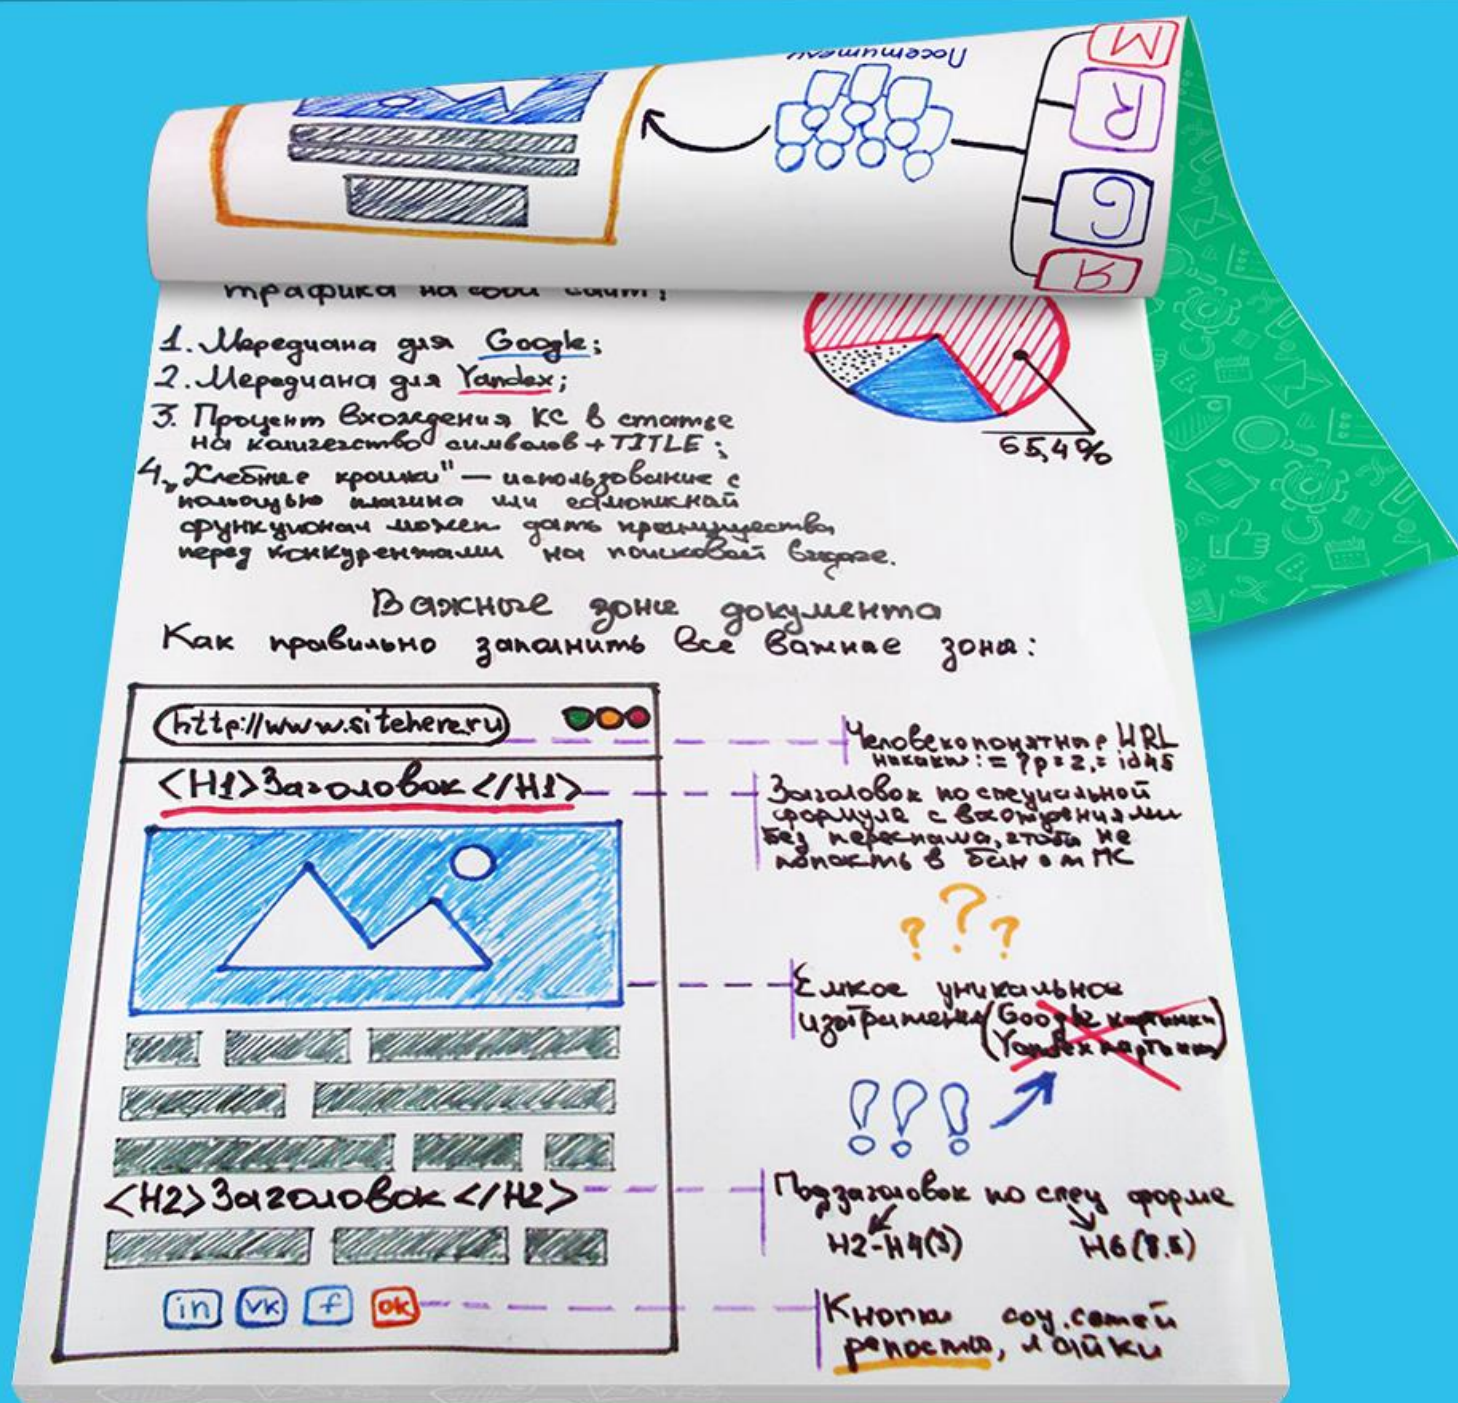 Посетители
M
R
G
Я
трафика на свой сайт:
1. Мередиана для Google;
2. Мередиана для Yandex;
3. Процент вхождения КС в статье
на количество символов + TITLE;
4. „Хлебные крошки" — использование с
помощью плагина или
функционал может дать преимущества
перед конкурентами на поисковой выдаче.
65,4%
Важные зоны документа
Как правильно заполнить все важные зоны:
http://www.sitehere.ru
<H1>Заголовок</H1>
<H2>Заголовок</H2>
in
vk
f
ok
Человекопонятные URL
никаких: = ?p=2,= id45
Заголовок по специальной
формуле с вхождениями
без переспама, чтобы не
попасть в бан от ПС
???
Емкое уникальное
изображение (Google картинки
Yandex картинки)
!!!
Подзаголовок по спец форме
H2-H4(3)
H6(8.5)
Кнопки соц. сетей
репосты, лайки